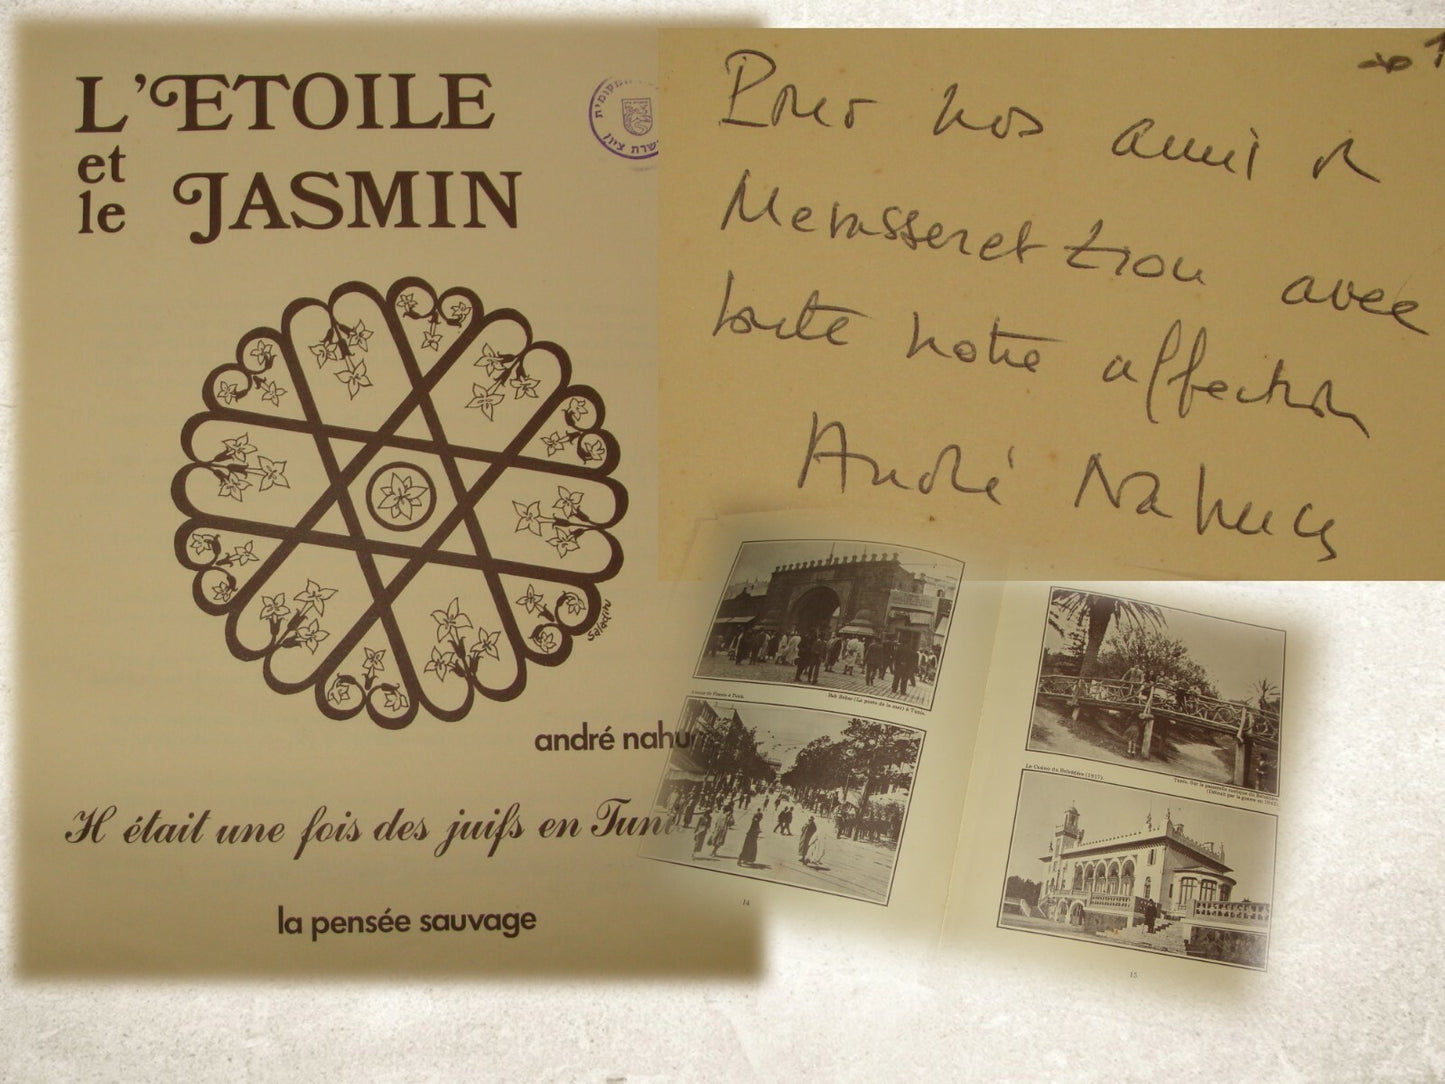 L'ETOILE
et
le JASMIN
Saladin
andré nahu
Il était une fois des juifs en Tuni
la pensée sauvage
Pour nos amis de
Mevasseret Zion avec
toute notre affection
André Nahum
Bab Behar (La porte de la mer) à Tunis.
14
Le Casino du Belvédère (1917).
Tunis. Sur la passerelle rustique du Belvédère
(Détruit par la guerre en 1942)
15